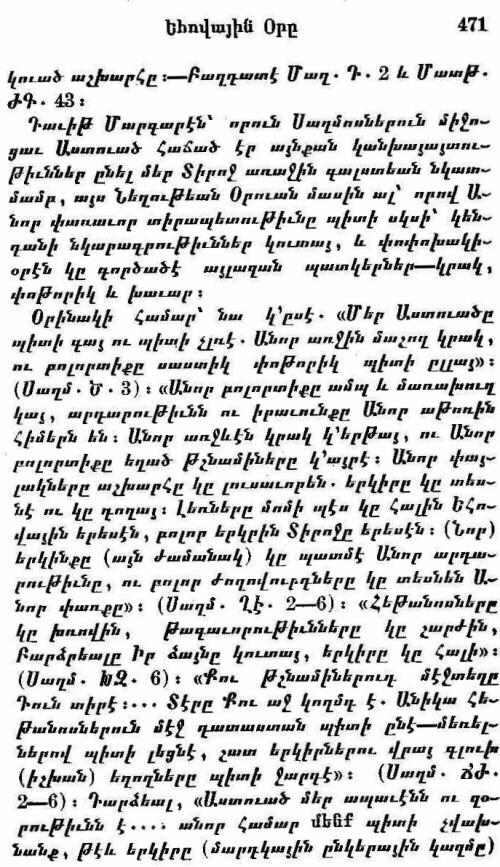 Եհովային Օրը 471
կուած աշխարհը:—Բաղդատէ Մաղ. Դ. 2 և Մատթ.
ԺԳ. 43:
Դաւիթ Մարգարէն՝ որուն Սաղմոսներուն միջո-
ցաւ Աստուած հաճած էր այնքան կանխայայտու-
թիւններ ընել մեր Տիրոջ առաջին գալստեան նկատ-
մամբ, այս Նեղութեան Օրուան մասին ալ՝ որով Ա-
նոր փառաւոր տիրապետութիւնը պիտի սկսի՝ կեն-
դանի նկարագրութիւններ կուտայ, և փոփոխակի-
օրէն կը գործածէ այլազան պատկերներ—կրակ,
փոթորիկ և խաւար:
Օրինակի համար՝ նա կ'ըսէ. «Մեր Աստուածը
պիտի գայ ու պիտի չլռէ. Անոր առջին մաշող կրակ,
ու բոլորտիքը սաստիկ փոթորիկ պիտի ըլլայ»:
(Սաղմ. Ծ. 3): «Անոր բոլորտիքը ամպ և մառախուղ
կայ, արդարութիւնն ու իրաւունքը Անոր աթոռին
հիմերն են: Անոր առջևէն կրակ կ'երթայ, ու Անոր
բոլորտիքը եղած թշնամիները կ'այրէ: Անոր փայ-
լակները աշխարհը կը լուսաւորեն. երկիրը կը տես-
նէ ու կը դողայ: Լեռները մոմի պէս կը հալին Եհո-
վային երեսէն, բոլոր երկրին Տիրոջը երեսէն: (Նոր)
երկինքը (այն ժամանակ) կը պատմէ Անոր արդա-
րութիւնը, ու բոլոր ժողովուրդները կը տեսնեն Ա-
նոր փառքը»: (Սաղմ. ՂԷ. 2—6): «Հեթանոսները
կը խռովին, թագաւորութիւնները կը շարժին,
Բարձրեալը Իր ձայնը կուտայ, երկիրը կը հալի»:
(Սաղմ. ԽԶ. 6): «Քու թշնամիներուդ մէջտեղը
Դուն տիրէ:... Տէրը Քու աջ կողմդ է. Անիկա հե-
թանոսներուն մէջ դատաստան պիտի ընէ—մեռել-
ներով պիտի լեցնէ, շատ երկիրներու վրայ գլուխ
(իշխան) եղողները պիտի ջարդէ»: (Սաղմ. ՃԺ.
2—6): Դարձեալ, «Աստուած մեր ապաւէնն ու զօ-
րութիւնն է.... անոր համար մենք պիտի չվախ-
նանք, թէև երկիրը (մարդկային ընկերային կազմը)